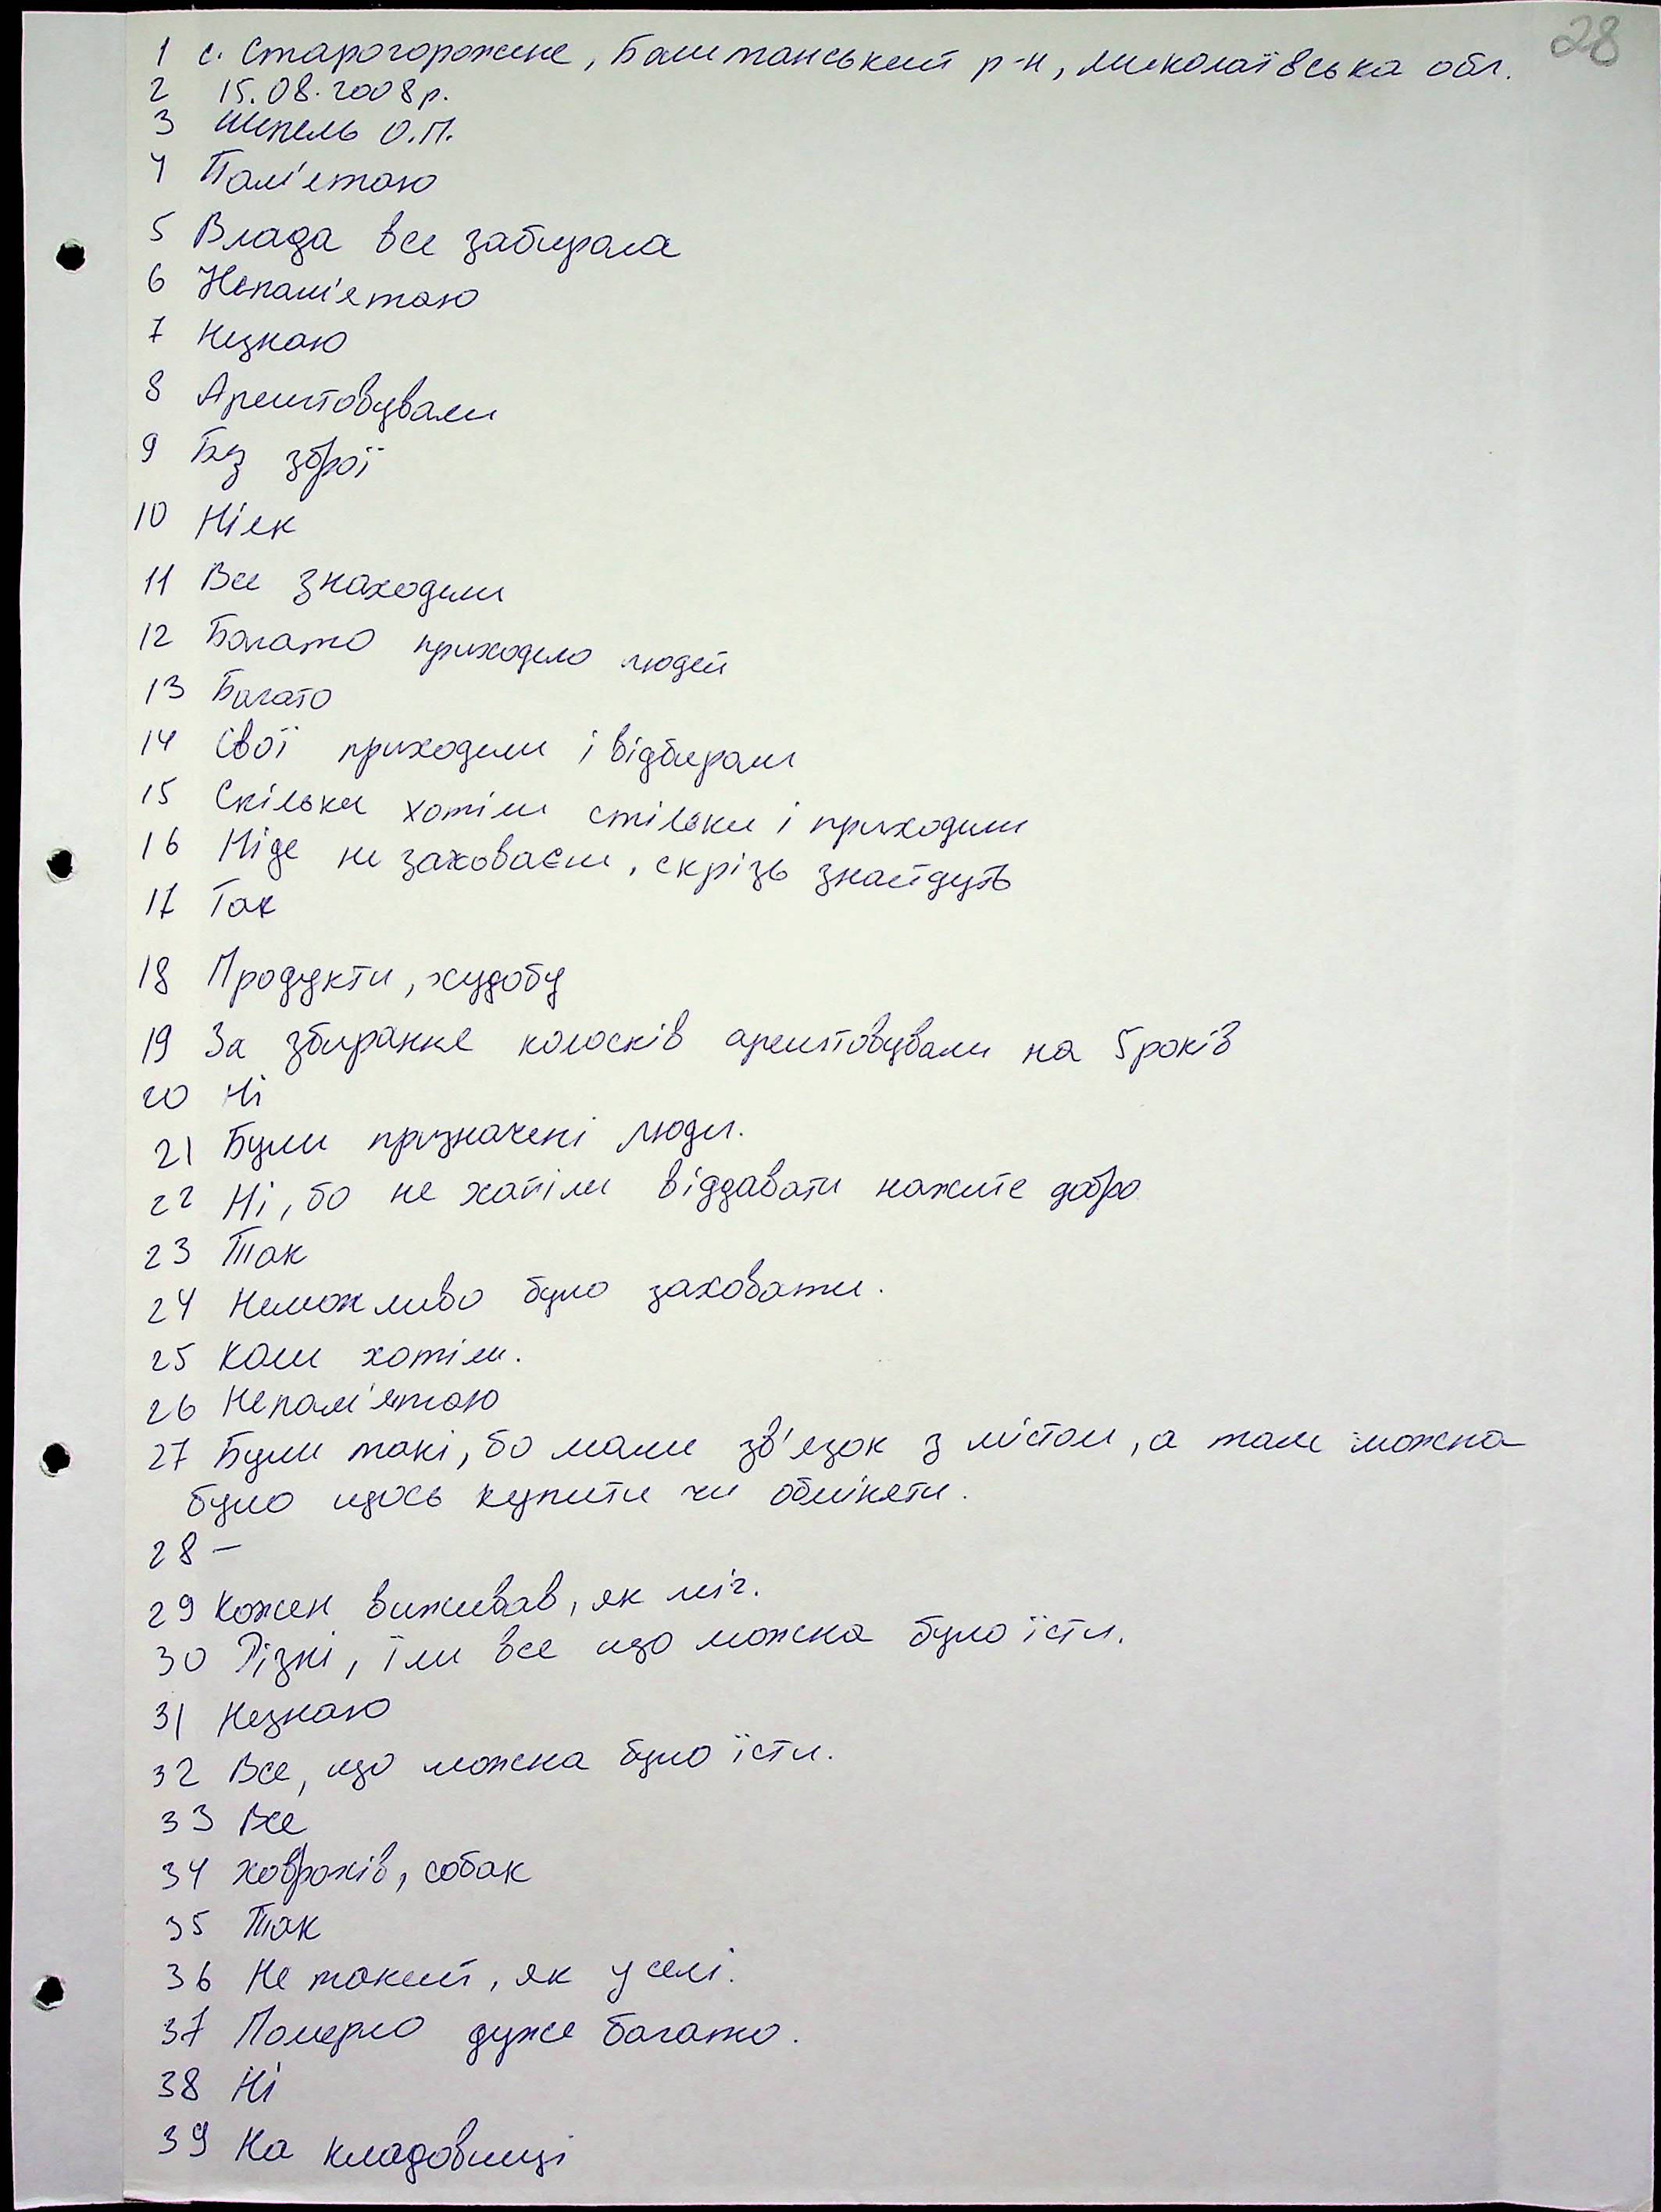 28
1 с. Старогорожене, Баштанський р-н, Миколаївська обл.
2 15.08.2008 р.
3 Шпель О.П.
4 Пам'ятаю
5 Влада все забирала
6 Непам'ятаю
7 Незнаю
8 Арештовували
9 Без зброї
10 Ніяк
11 Все знаходили
12 Багато приходило людей
13 Багато
14 Свої приходили і відбирали
15 Скільки хотіли стільки і приходили
16 Ніде не заховаєш, скрізь знайдуть
17 Так
18 Продукти, худобу
19 За збирання колосків арештовували на 5 років
20 Ні
21 Були призначені люди.
22 Ні, бо не хатіли віддавати нажите добро
23 Так
24 Неможливо було заховати.
25 Коли хотіли.
26 Непам'ятаю
27 Були такі, бо мали зв'язок з містом, а там можна
було щось купити чи обміняти.
28 –
29 Кожен виживав, як міг.
30 Різні, їли все що можна було їсти.
31 Незнаю
32 Все, що можна було їсти.
33 Все
34 Ховрахів, собак
35 Так
36 Не такий, як у селі.
37 Померло дуже багато.
38 Ні
39 На кладовищі